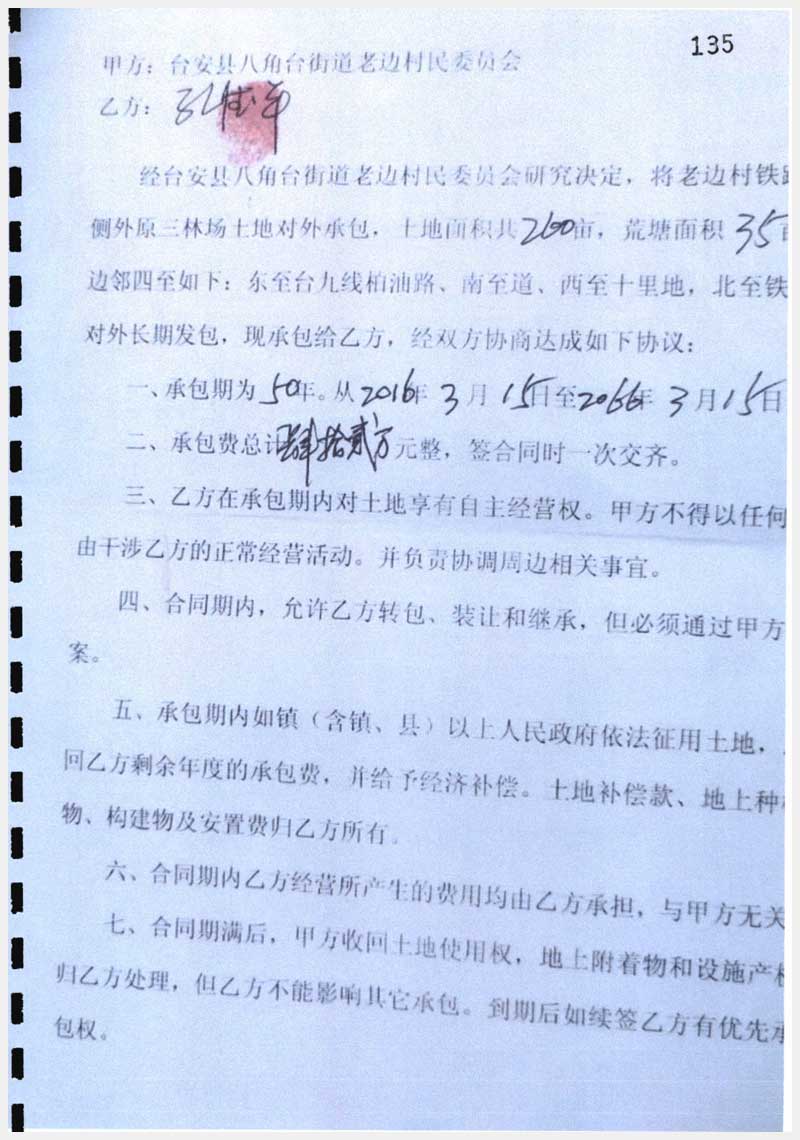 135
甲方：台安县八角台街道老边村民委员会
乙方：
经台安县八角台街道老边村民委员会研究决定，将老边村铁
侧外原三林场土地对外承包，土地面积共260亩，荒塘面积35
边邻四至如下：东至台九线柏油路、南至道、西至十里地，北至铁
对外长期发包，现承包给乙方，经双方协商达成如下协议：
一、承包期为50年。从2016年3月15日至2066年3月15日
二、承包费总计肆拾贰万元整，签合同时一次交齐。
三、乙方在承包期内对土地享有自主经营权。甲方不得以任何
由干涉乙方的正常经营活动。并负责协调周边相关事宜。
四、合同期内，允许乙方转包、装让和继承，但必须通过甲方
案。
五、承包期内如镇（含镇、县）以上人民政府依法征用土地，
回乙方剩余年度的承包费，并给予经济补偿。土地补偿款、地上种
物、构建物及安置费归乙方所有。
六、合同期内乙方经营所产生的费用均由乙方承担，与甲方无关
七、合同期满后，甲方收回土地使用权，地上附着物和设施产权
归乙方处理，但乙方不能影响其它承包。到期后如续签乙方有优先承
包权。